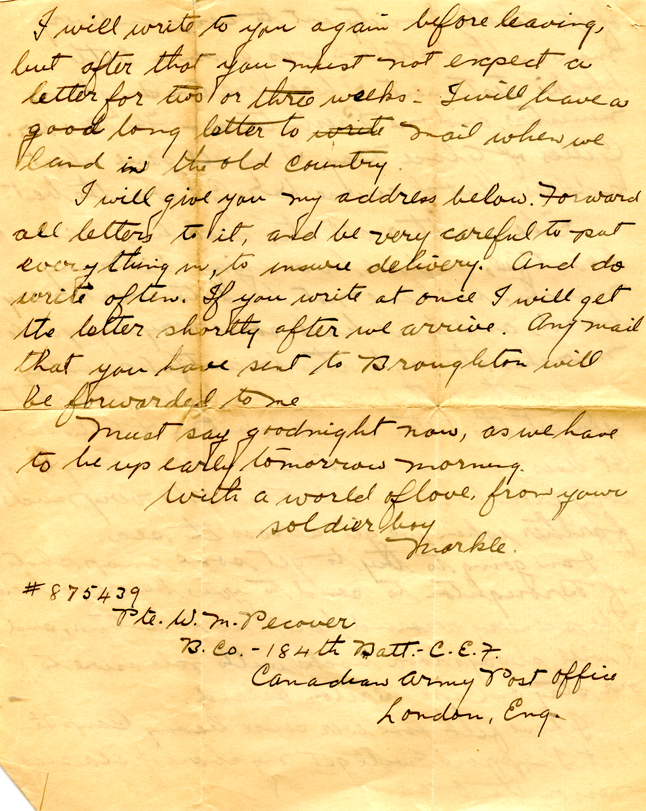 I will write to you again before leaving,
but after that you must not expect a
letter for two or three weeks - I will have a
good long letter to write mail when we
land in the old country.
I will give you my address below. Forward
all letters to it, and be very careful to put
everything in, to insure delivery. And do
write often. If you write at once I will get
the letter shortly after we arrive. Any mail
that you have sent to Broughton will
be forwarded to me
Must say goodnight now, as we have
to be up early tomorrow morning.
With a world of love, from your
soldier boy
Markle.
#875439
Pte. W. M. Pecover
B. Co. - 184th Batt. - C. E. F.
Canadian Army Post Office
London, Eng.